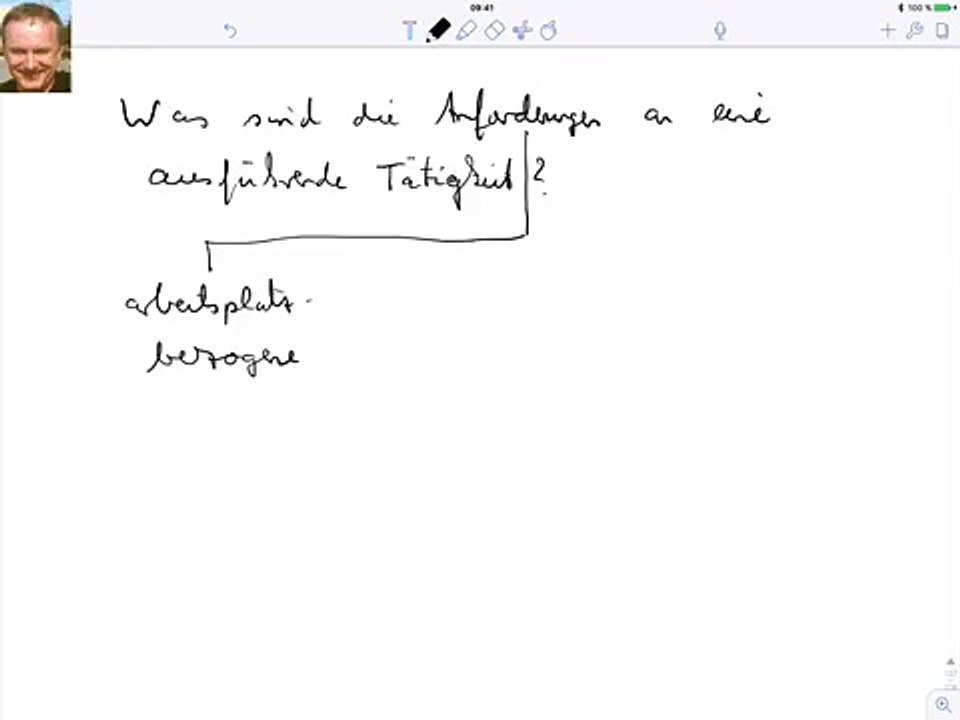 09:41
100 %
T
Was sind die Anforderungen an eine
ausführende Tätigkeit?
arbeitsplatz-
bezogene